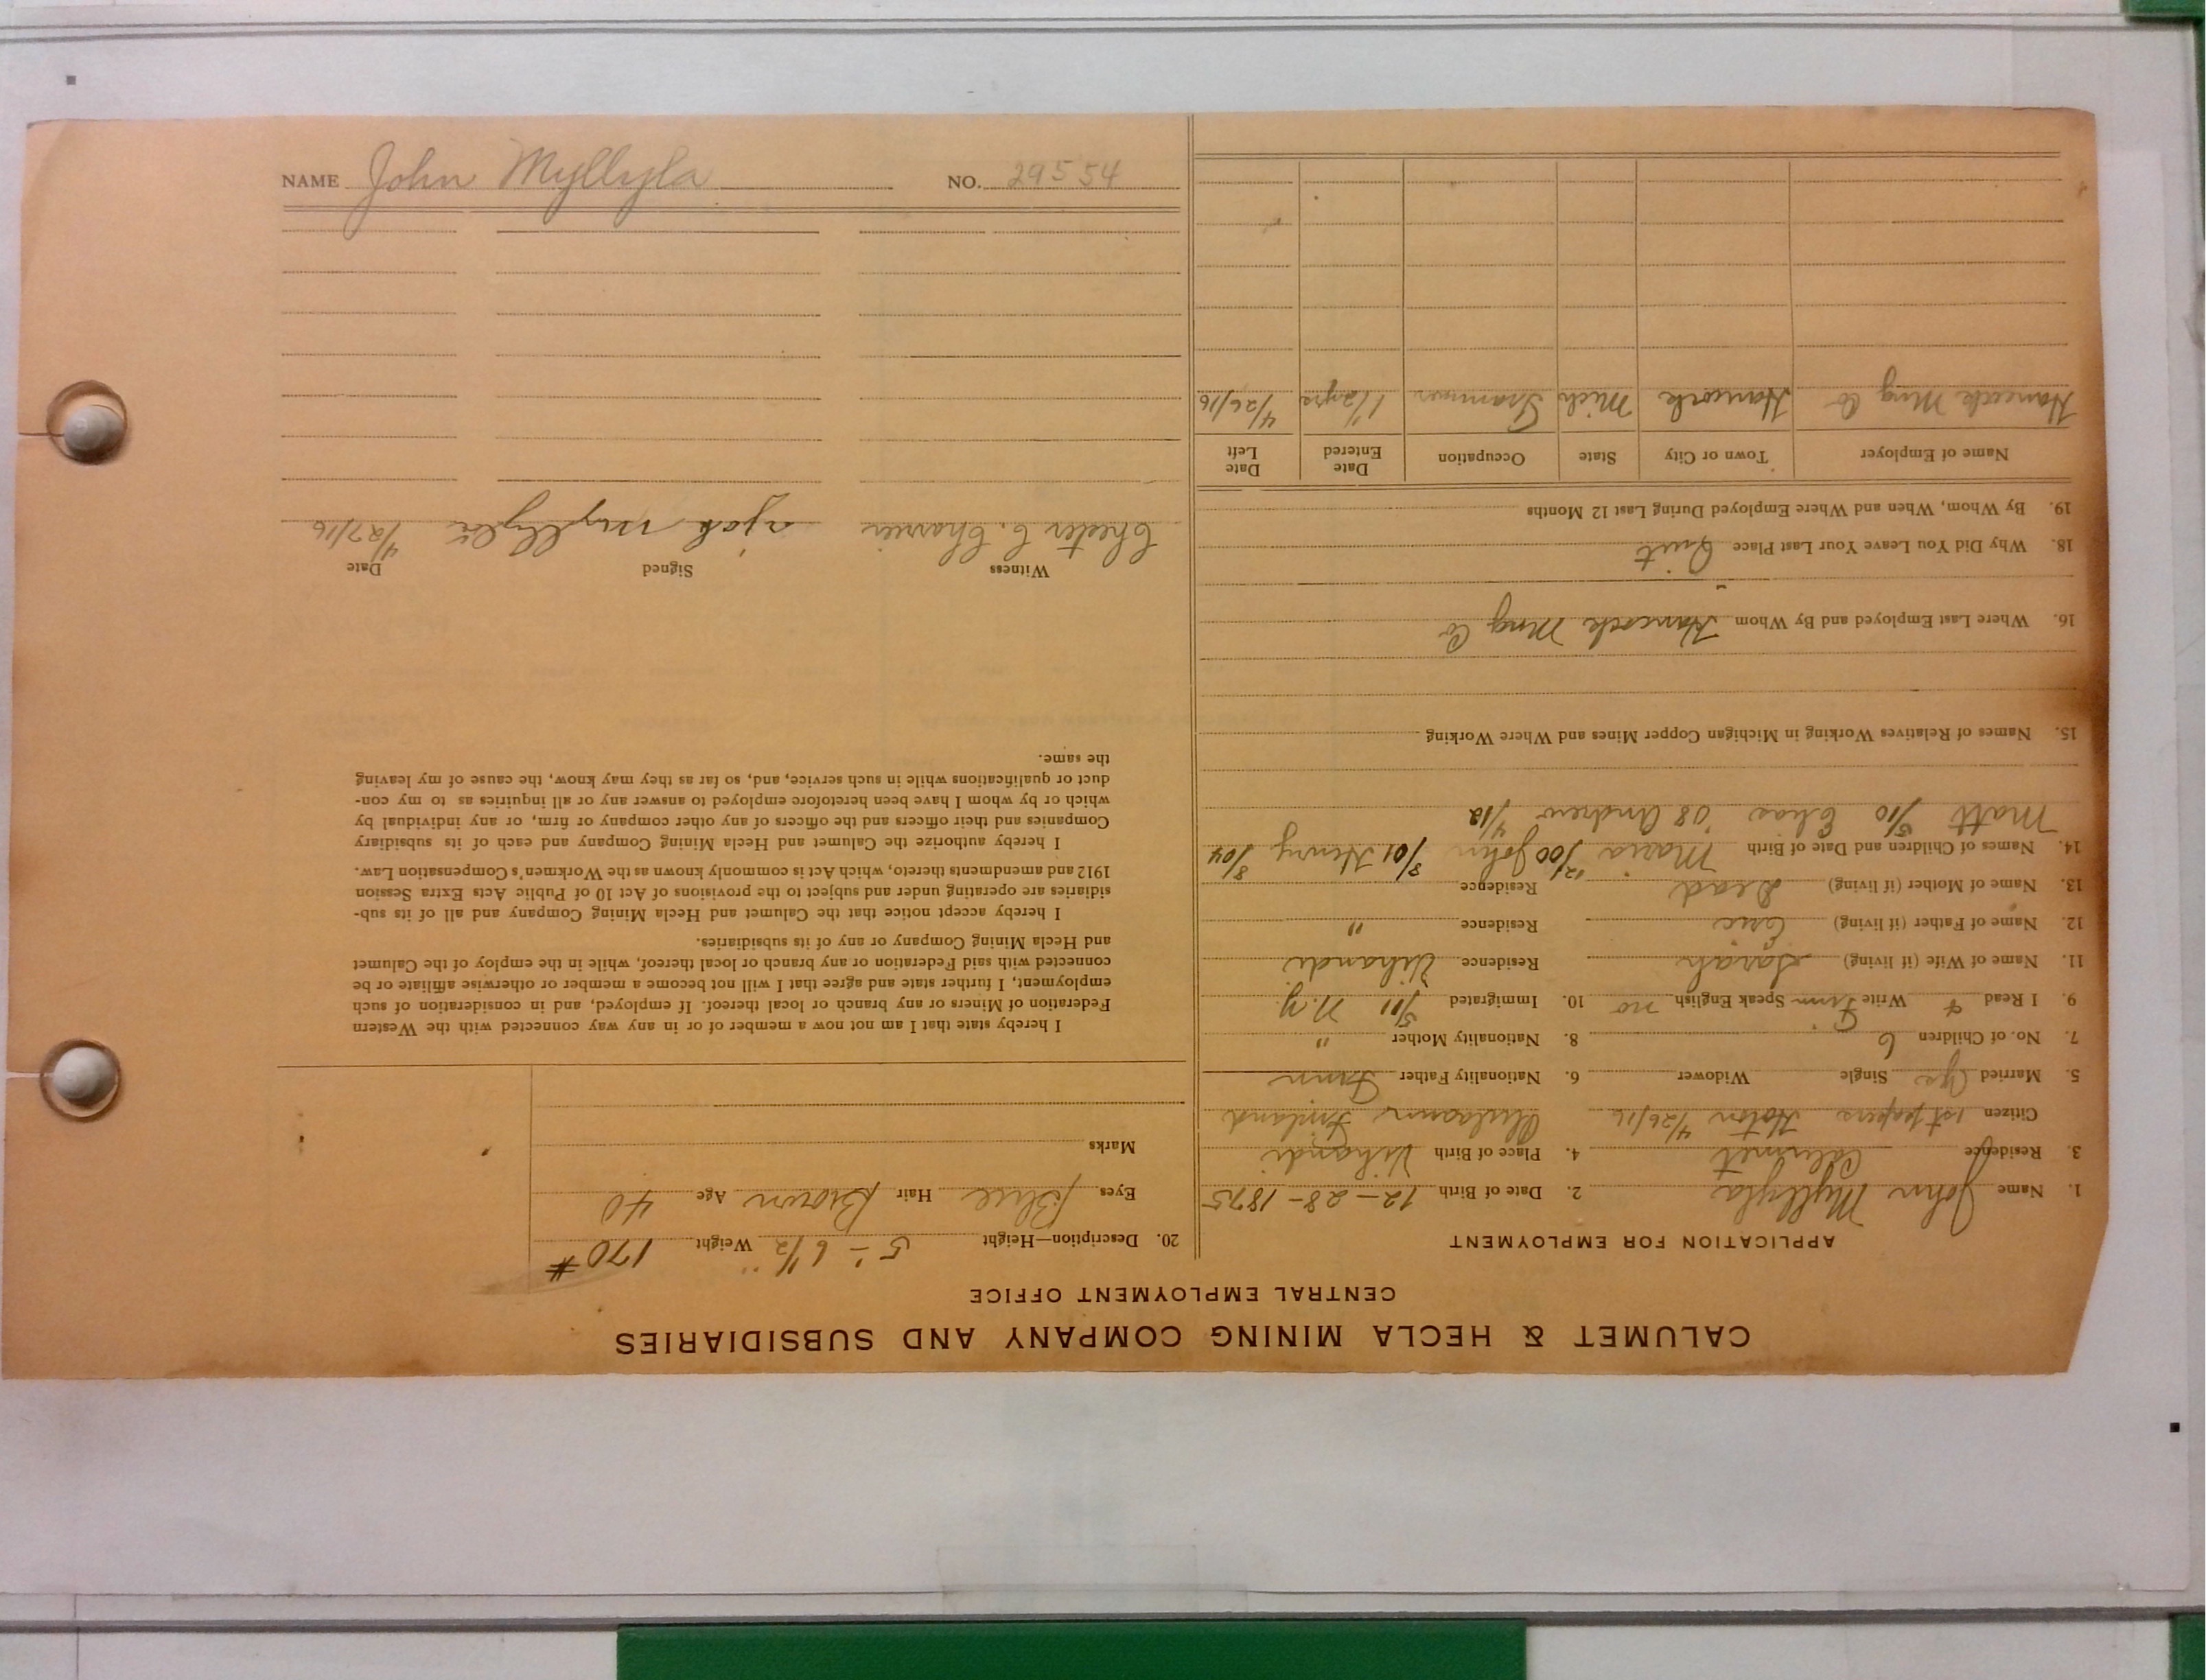 CALUMET & HECLA MINING COMPANY AND SUBSIDIARIES
CENTRAL EMPLOYMENT OFFICE
APPLICATION FOR EMPLOYMENT
1. Name John Myllyla 2. Date of Birth 12-28-1875
3. Residence Calumet 4. Place of Birth Vihandi
Citizen 1st papers Hoton 4/26/16 Finland
5. Married Yes Single Widower 6. Nationality Father Finn
7. No. of Children 6 8. Nationality Mother "
9. I Read & Write Finn Speak English no 10. Immigrated 5/11 N.Y.
11. Name of Wife (if living) Sarah Residence Vihandi
12. Name of Father (if living) Eric Residence "
13. Name of Mother (if living) Dead Residence
14. Names of Children and Date of Birth Maria 12/00 John 8/01 Henry 8/04
Matt 5/10 Elias '08 Andrew 4/12
15. Names of Relatives Working in Michigan Copper Mines and Where Working
16. Where Last Employed and By Whom Hancock Mng Co
18. Why Did You Leave Your Last Place Quit
19. By Whom, When and Where Employed During Last 12 Months
Name of Employer Town or City State Occupation Date Entered Date Left
Hancock Mng Co Hancock Mich Trammer 4/26/16
20. Description—Height 5'-6 1/2" Weight 170 #
Eyes Blue Hair Brown Age 40
Marks
I hereby state that I am not now a member of or in any way connected with the Western
Federation of Miners or any branch or local thereof. If employed, and in consideration of such
employment, I further state and agree that I will not become a member or otherwise affiliate or be
connected with said Federation or any branch or local thereof, while in the employ of the Calumet
and Hecla Mining Company or any of its subsidiaries.
I hereby accept notice that the Calumet and Hecla Mining Company and all of its sub-
sidiaries are operating under and subject to the provisions of Act 10 of Public Acts Extra Session
1912 and amendments thereto, which Act is commonly known as the Workmen's Compensation Law.
I hereby authorize the Calumet and Hecla Mining Company and each of its subsidiary
Companies and their officers and the officers of any other company or firm, or any individual by
which or by whom I have been heretofore employed to answer any or all inquiries as to my con-
duct or qualifications while in such service, and, so far as they may know, the cause of my leaving
the same.
Witness Signed Date
Chester C. Myllylä 4/27/16
NAME John Myllyla NO. 29554